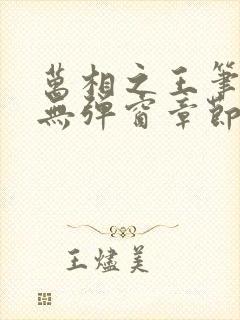 萬相之王筆
無彈窗章節
王燼美